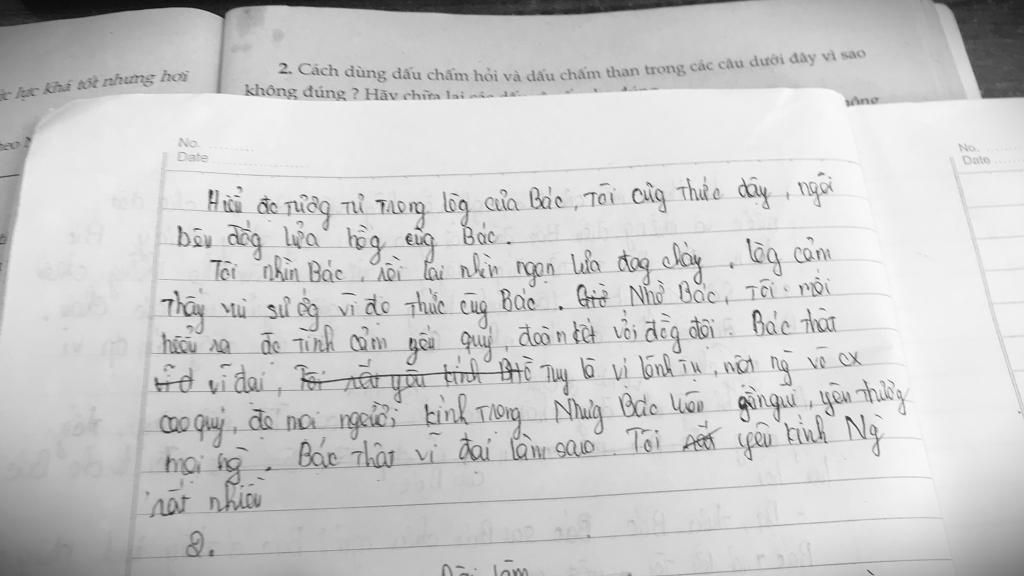 ực lực khá tốt nhưng hơi
2. Cách dùng dấu chấm hỏi và dấu chấm than trong các câu dưới đây vì sao
không đúng ? Hãy chữa lại các dấu
No.
Date
No.
Date
Hiểu đc tường tử trong lòg của Bác, Tôi cũg thức dậy, ngồi
bên đốg lửa hồg cùg Bác.
Tôi nhìn Bác rồi lại nhìn ngọn lửa đag cháy. lòg cảm
thấy vui sư vì đc thức cùg Bác. Nhờ Bác, Tôi mới
hiểu ra đc tình cảm yêu quý, đoàn kết với đồg đội. Bác thật
vĩ đại, Tôi rất yêu kính Bác Tuy là vị lãnh tụ, một ng vô cx
cao quý, đc mọi người kính trọng Nhưg Bác luôn gần gũi, yêu thươg
mọi ng. Bác thật vĩ đại làm sao. Tôi rất yêu kính Ng
rất nhiều
2.
Bài làm